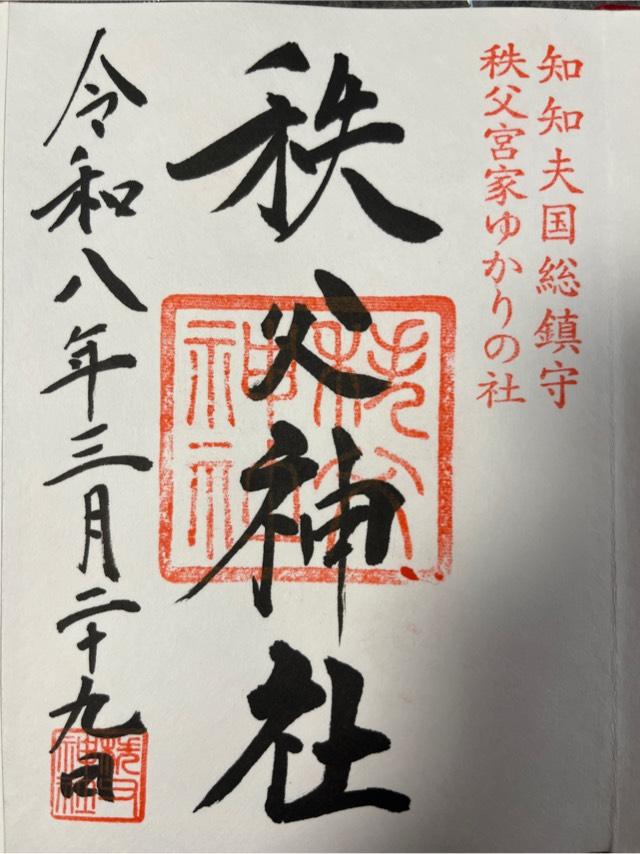 知知夫国総鎮守
秩父宮家ゆかりの社
秩父神社
秩父神社
令和八年三月二十九日
秩父神社